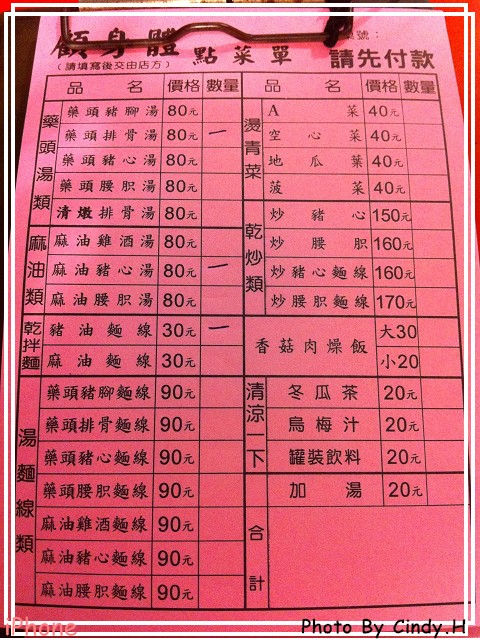 顧身體 點菜單
桌號：
(請填寫後交由店方)
請先付款
品名 價格 數量
藥頭湯類
藥頭豬腳湯 80元
藥頭排骨湯 80元 一
藥頭豬心湯 80元
藥頭腰胆湯 80元
清燉排骨湯 80元
麻油類
麻油雞酒湯 80元
麻油豬心湯 80元 一
麻油腰胆湯 80元
乾拌麵
豬油麵線 30元 一
麻油麵線 30元
湯麵線類
藥頭豬腳麵線 90元
藥頭排骨麵線 90元
藥頭豬心麵線 90元
藥頭腰胆麵線 90元
麻油雞酒麵線 90元
麻油豬心麵線 90元
麻油腰胆麵線 90元
品名 價格 數量
燙青菜
A菜 40元
空心菜 40元
地瓜葉 40元
菠菜 40元
乾炒類
炒豬心 150元
炒腰胆 160元
炒豬心麵線 160元
炒腰胆麵線 170元
香菇肉燥飯 大30
小20
清涼一下
冬瓜茶 20元
烏梅汁 20元
罐裝飲料 20元
加湯 20元
合計
iPhone
Photo By Cindy.H